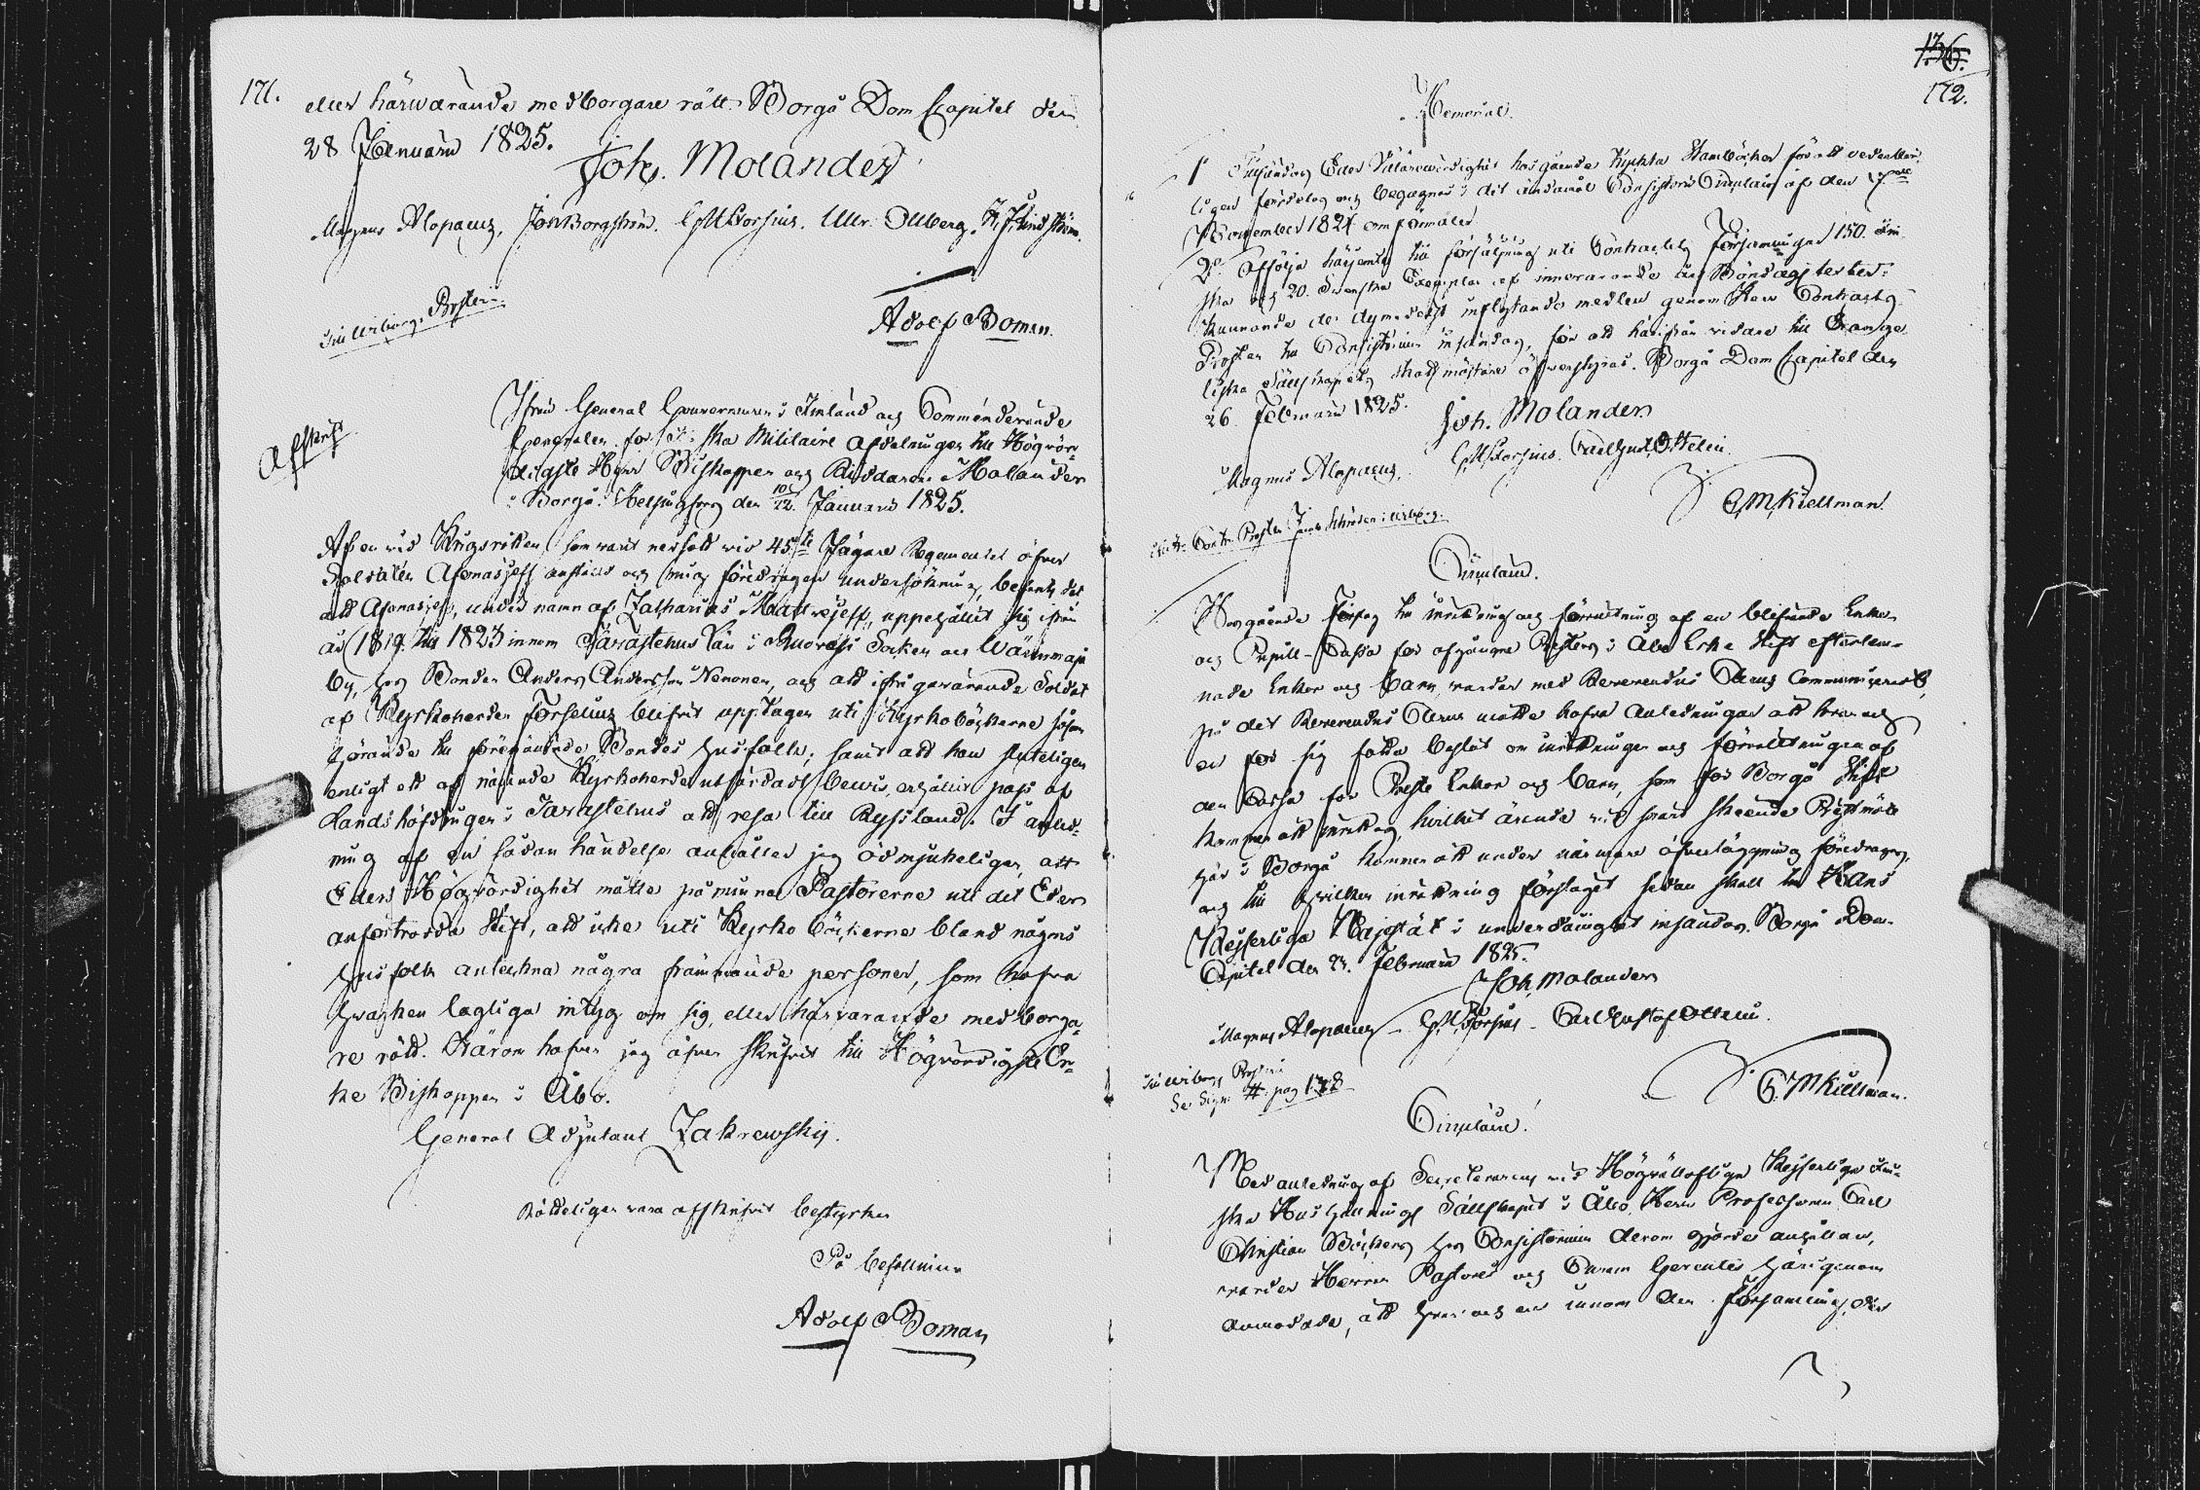 171.
eller härwarande medborgare rätt. Borgå Dom Capitel den
28 Januarii 1825.
Joh. Molander
Magnus Alopaeus, Joh Borgström. G M Forsius. Ullr. Ollberg. H. J. Lindström.
Adolf Boman.
till Wiborgs Prosteri
Afskrift
Ifrån General Gouverneuren i Finland och Commenderande
Generalen för Finska Militaire Afdelningen till Högvör-
digste Herr Biskoppen och Riddaren Molander
i Borgå. Helsingfors den 10/22 Januarii 1825.
Af en vid Krigsrätten, som varit nedsatt vid 45te Jägare Regementet öfver
Soldaten Afanasjeff anstäld och mig föredragen undersökning, befants det
att Afanasjeff, under namn af Zacharias Matwejeff, uppehållit sig ifrån
år 1819 till 1823 innom Tavastehus Län i Socken och
by, hos Bonden Anders Andersson Nenonen, och att ifrågavarande Soldat
af Kyrkoherden Forselius blifvit upptagen uti Kyrkoböckerne såsom
hörande till förenämde Bondes husfolk; samt att han sluteligen
enligt ett af nämnde Kyrkoherde utfärdadt bewis, erhållit pass af
Landshöfdingen i Tavastehus att resa till Ryssland. I anled-
ning af en sådan händelse anhåller jag ödmjukeligen, att
Eders Högvördighet måtte påminna Pastorerne uti det Eder
anförtrodda Stift, att icke uti Kyrko böckerne bland någons
husfolk anteckna några främmande personer, som hafva
hvarken lagliga intyg om sig, eller härvarande medborga-
re rätt. Härom hafver jag äfven skrifvit till Högvördigste Er-
ke Biskoppen i Åbo.
General Adjutant Zakrewskij.
Rätteligen vara afskrifvit bestyrker
På befallning
Adolf Boman
136.
172.
Memorial.
1o Tillsändas Eder Vällärevördighet hosgående tryckta Stamböcker för att vederbör-
ligen fördelas och begagnas i det ändamål Consistorii Circulair af den 17de
November 1824 omförmäler
2o Afföljа härjemte till försäljning uti Contractets Församlingar 150 Fin-
ska och 20 Svenska Exemplar af innevarande års Böndags texter:
kunnande de dymedelst inflytande medlen genom Herr Contracts
Prosten till Consistorium insändas, för att härifrån vidare till Evange-
liska Sällskapets skattmästare öfverstyras. Borgå Dom Capitel den
26. Februarii 1825.
Joh. Molander
Magnus Alopaeus. G M Forsius. Carl Gust. Ottelin
G, M, Kiellman.
Circulair.
Hosgående Förslag till inrättning och förvaltning af en blifvande Enke-
och Pupill-Cassa för afgångne Presters i Åbo Erke Stift efterlem-
nade Enkor och Barn, varder med Reverendus Clerus communicerat,
på det Reverendus Clerus måtte hafva anledningar att hvar och
en för sig fatta beslut om inrättningen och förvaltningen af
den Cassa för Preste Enkor och Barn, som för Borgå Stift
kommer att inrättas, hvilket ärende vid snart skeende Prestmöte
här i Borgå kommer att under närmare öfverläggning föredragas,
och till hvilken inrättning förslaget sedan skall till Hans
Kejserliga Majestät i underdånighet insändas. Borgå Dom
Capitel den 23. Februarii 1825.
Joh, Molander
Magnus Alopaeus - G. M Forsius - Carl Gustaf Ottelin.
G. M Kiellman.
till Wiborgs Prosteri
Se Sign. # pag 178
Circulair!
Med anledning af Secreterarens vid Högvällofliga Kejserliga Fin-
ska Hushållnings Sällskapet i Åbo, Herr Professoren Carl
Christian Böckers hos Consistorium derom gjorde anhållan,
varder Herrar Pastores och Curam Gerentes härigenom
anmodade, att hvar och en innom den Församling, der